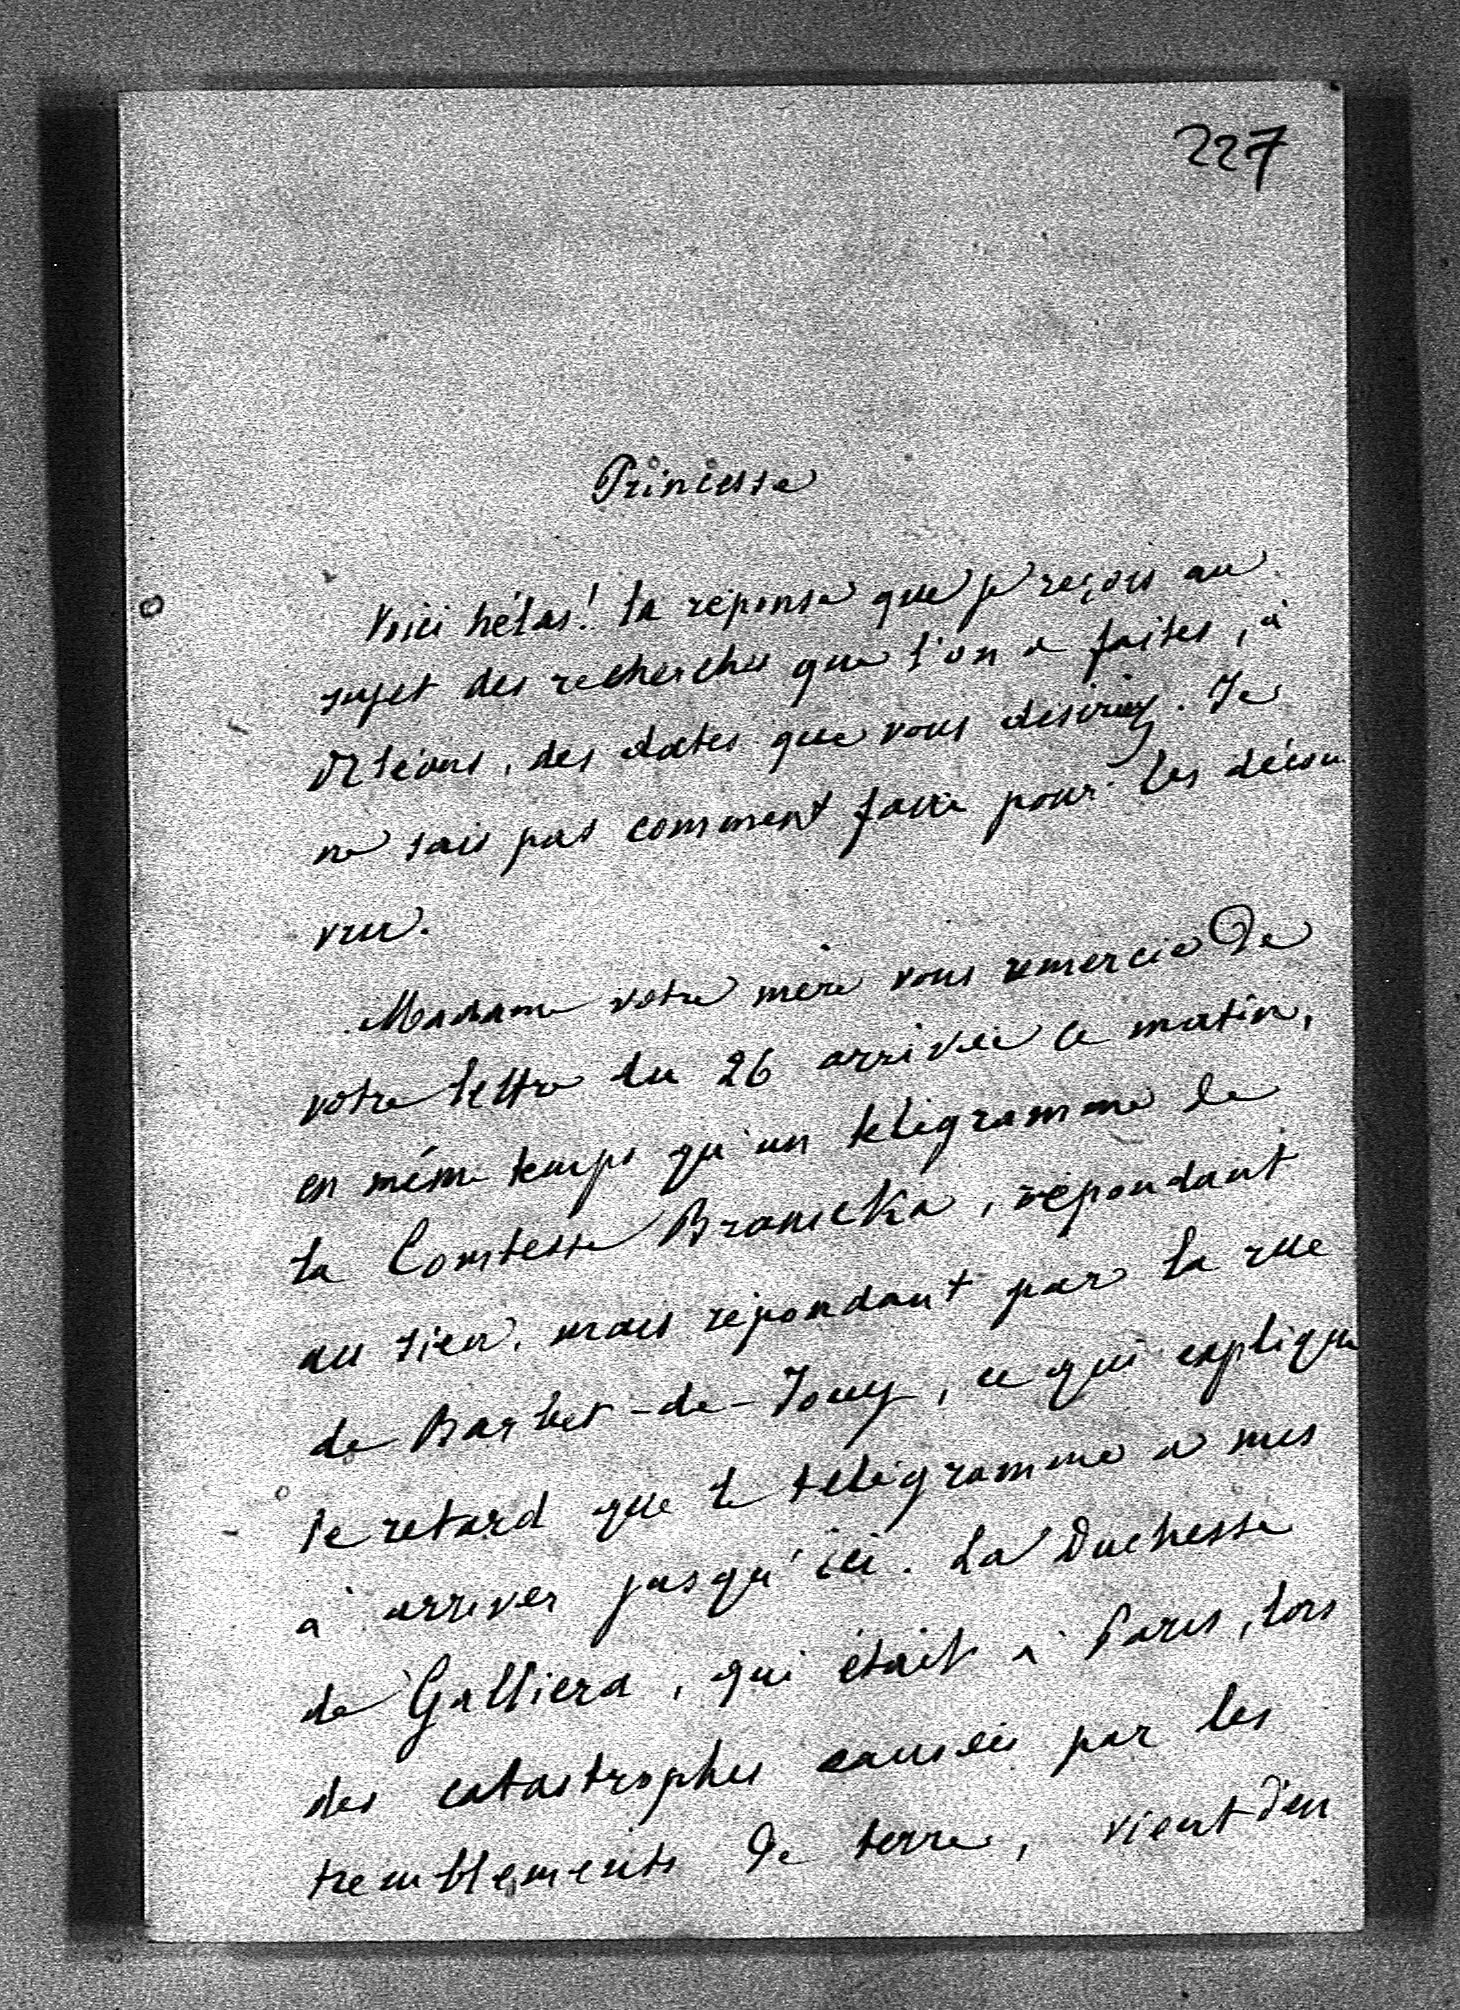 227
Princesse
Voici hélas! la réponse que je reçois au
sujet des recherches que l'on a faites, à
Orléans, des dates que vous désiriez. Je
ne sais pas comment faire pour les décou
vrir.
Madame votre mère vous remercie de
votre lettre du 26 arrivée ce matin,
en même temps qu'un télégramme de
la Comtesse Branicka, répondant
au sien, mais répondant par la rue
de Barbet-de-Jouy, ce qui explique
le retard que le télégramme a mis
à arriver jusqu'ici. La Duchesse
de Galliera, qui était à Paris, lors
des catastrophes causées par les
tremblements de terre, vient d'en